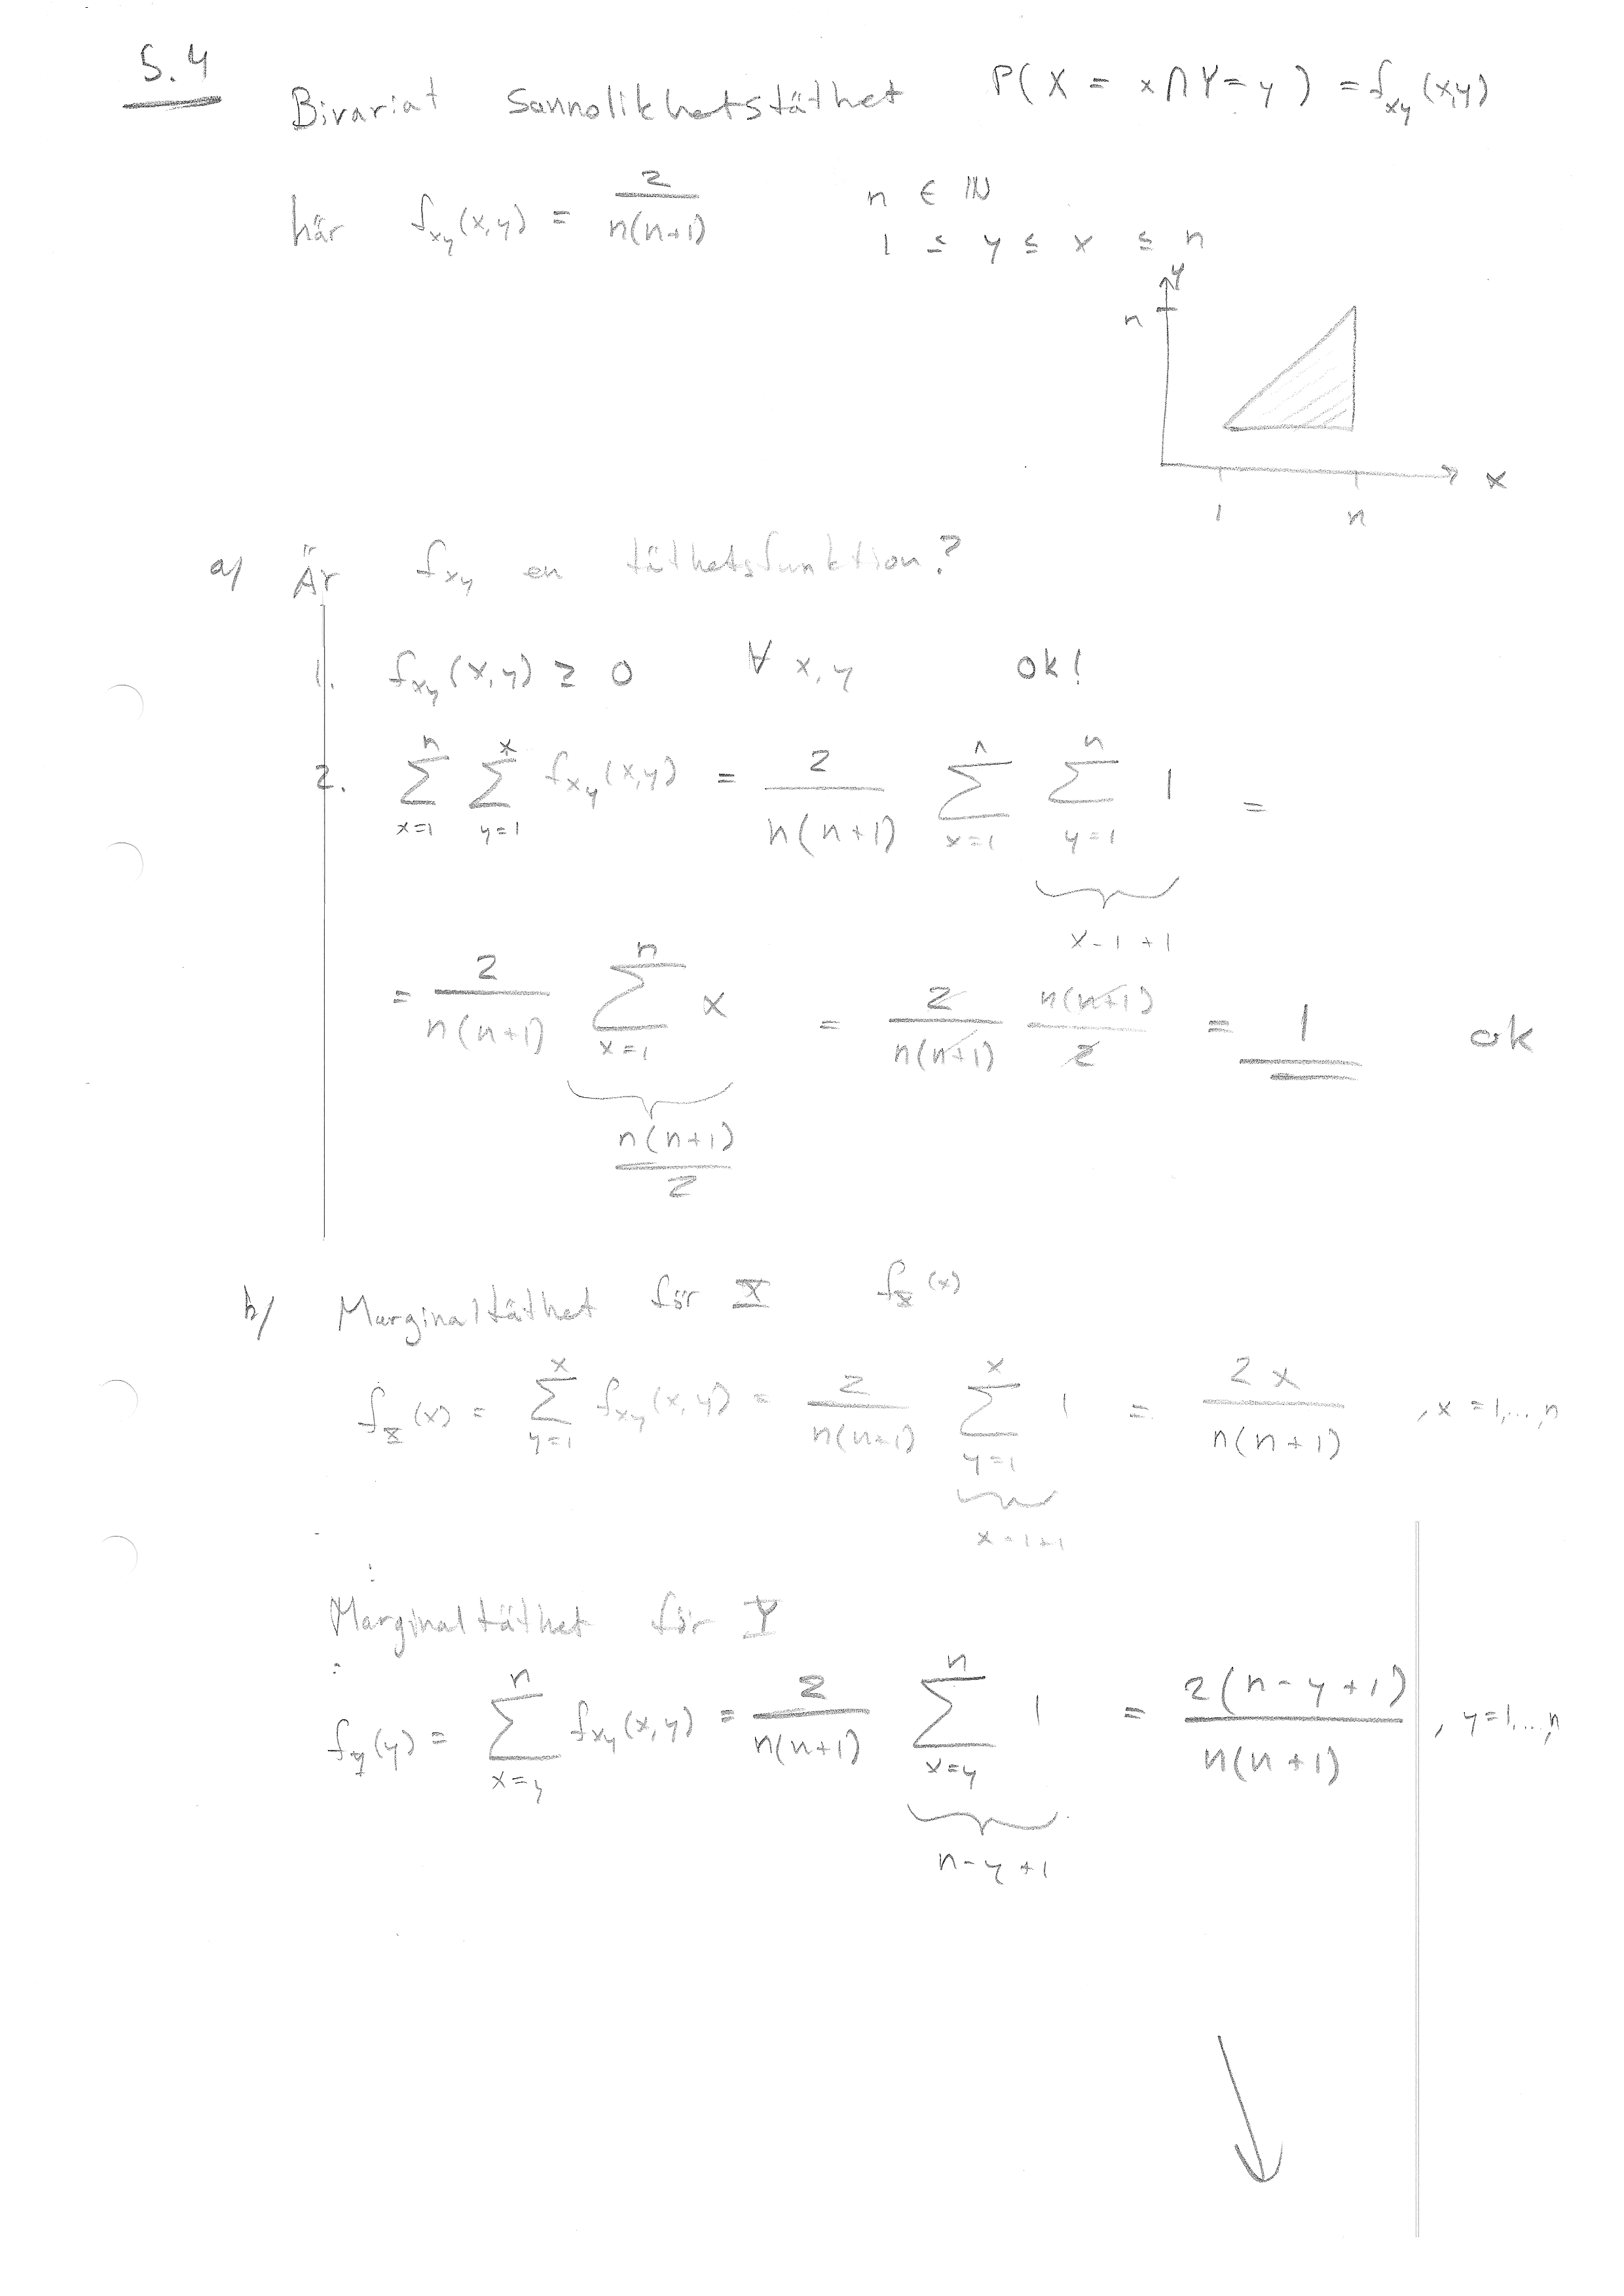 5.4
Bivariat Sannolikhetstäthet P(X = x ∩ Y = y) = f_xy(x,y)
här f_xy(x,y) = 2/(n(n+1)) n ∈ ℕ
1 ≤ y ≤ x ≤ n
y
n
x
1 n
a) Är f_xy en täthetsfunktion?
1. f_xy(x,y) ≥ 0 ∀ x,y ok!
2. ∑_{x=1}^{n} ∑_{y=1}^{x} f_xy(x,y) = 2/(n(n+1)) ∑_{x=1}^{n} ∑_{y=1}^{n} 1 =
x-1+1
= 2/(n(n+1)) ∑_{x=1}^{n} x = 2/(n(n+1)) n(n+1)/2 = 1 ok
n(n+1)/2
b) Marginaltäthet för X f_X(x)
f_X(x) = ∑_{y=1}^{x} f_xy(x,y) = 2/(n(n+1)) ∑_{y=1}^{x} 1 = 2x/(n(n+1)) , x=1,...,n
x-1+1
Marginaltäthet för Y
f_Y(y) = ∑_{x=y}^{n} f_xy(x,y) = 2/(n(n+1)) ∑_{x=y}^{n} 1 = 2(n-y+1)/(n(n+1)) , y=1,...,n
n-y+1